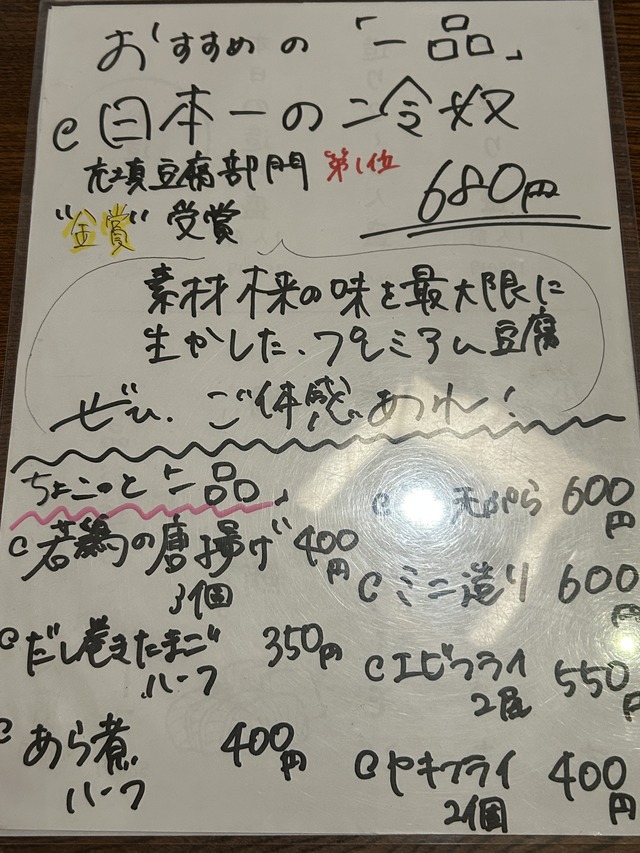 おすすめの「一品」
日本一の冷奴
充填豆腐部門 第1位
680円
"金賞" 受賞
素材本来の味を最大限に
生かした、プレミアム豆腐
ぜひ、ご体感あれ!
ちょこっと「一品」
若鶏の唐揚げ 400円
3個
だし巻きたまご 350円
ハーフ
あら煮 400円
ハーフ
天ぷら 600円
ミニ造り 600円
エビフライ 550円
2尾
カキフライ 400円
2個